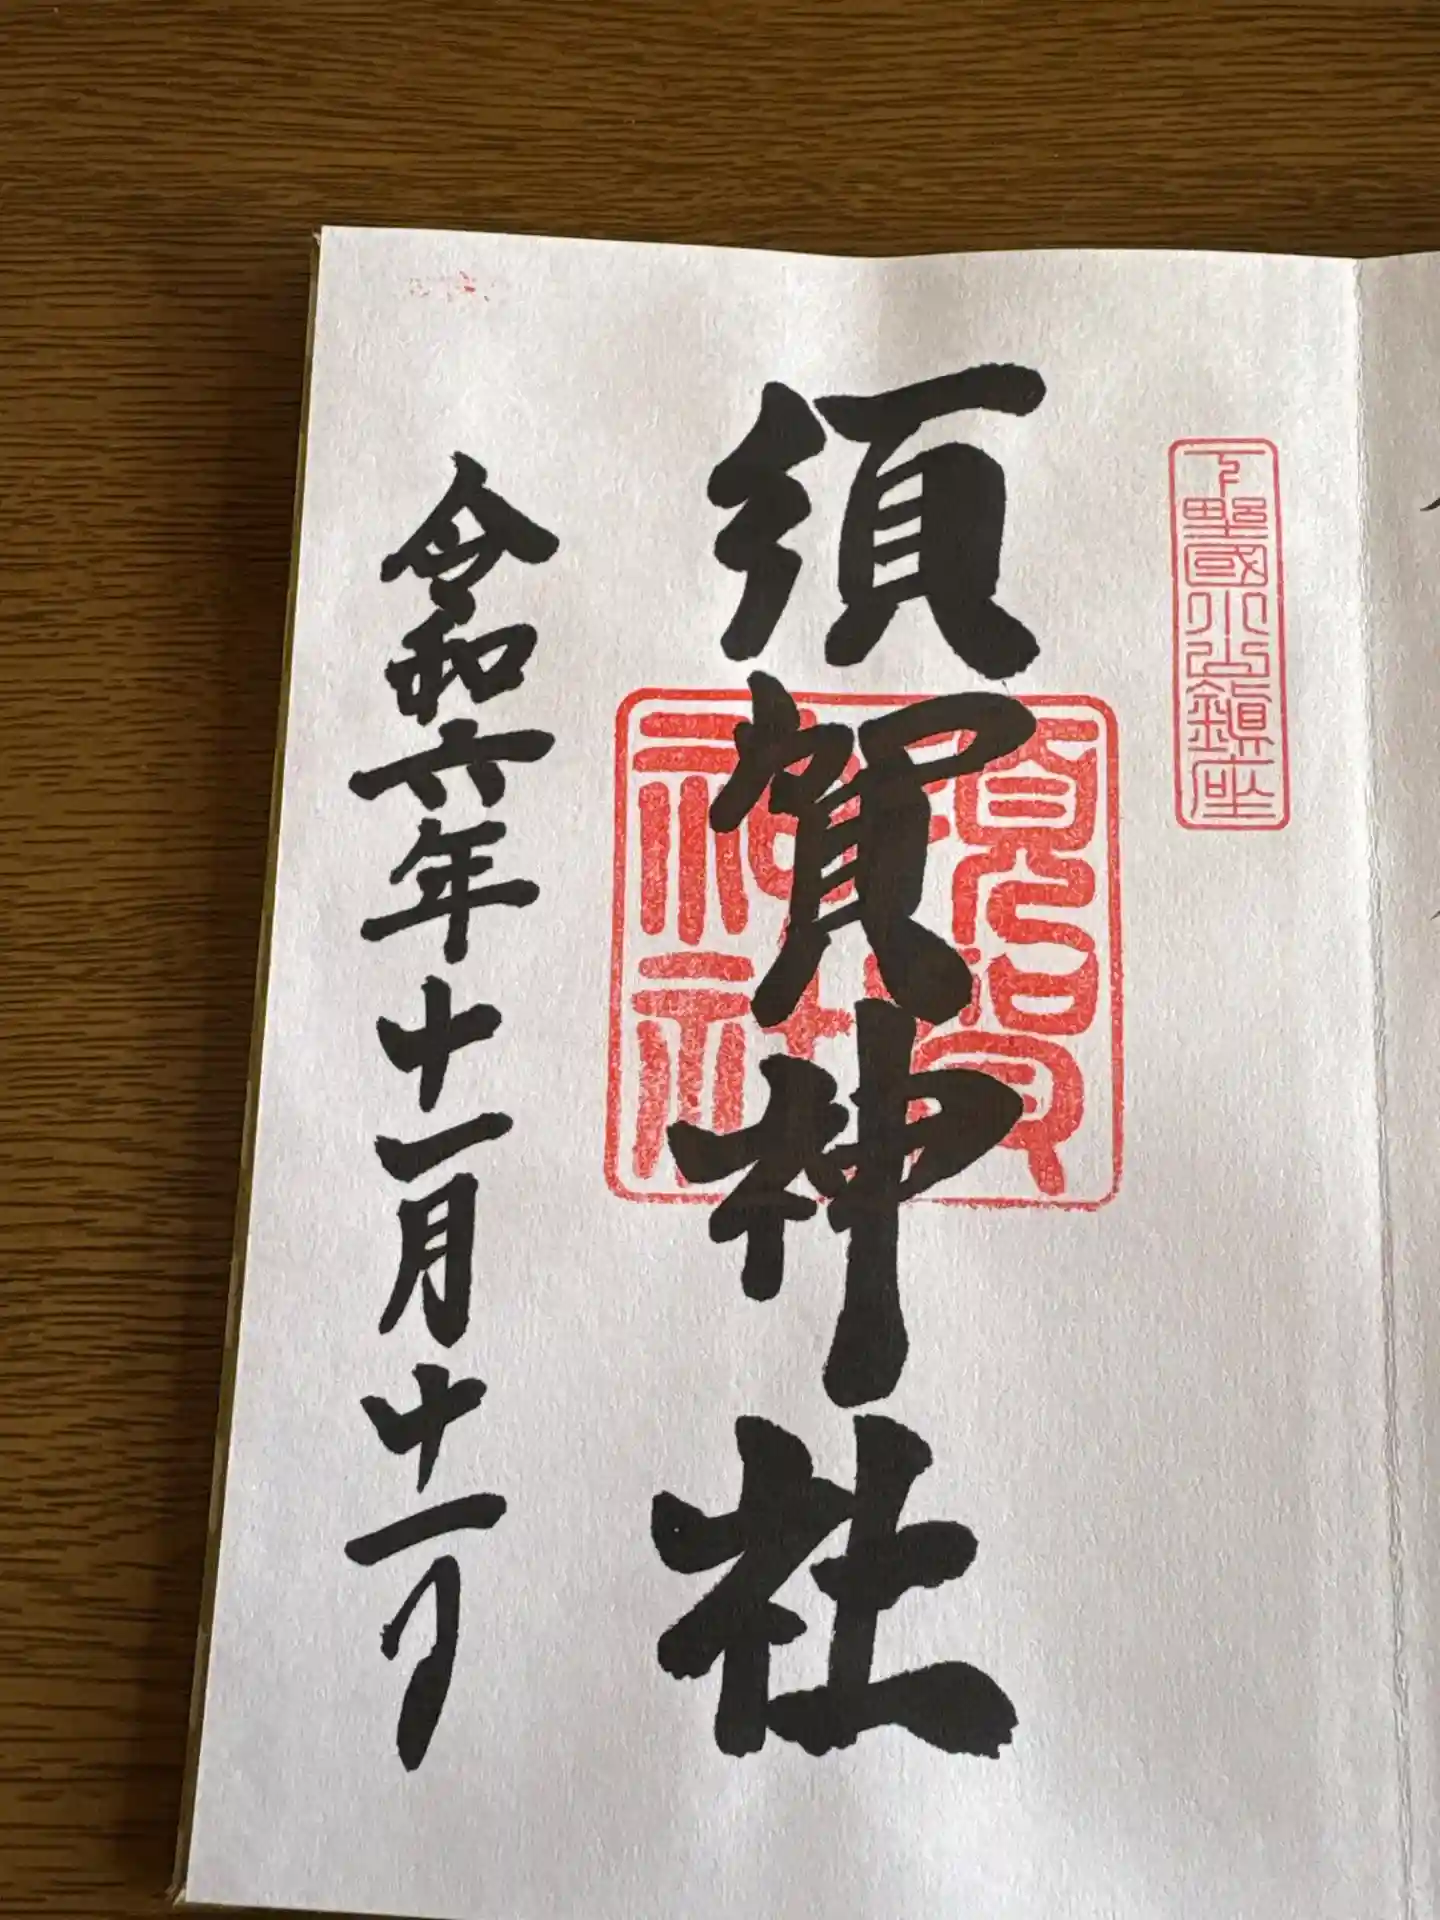 下野國小山鎮座
須賀神社
須賀
神社
令和六年十一月十一日